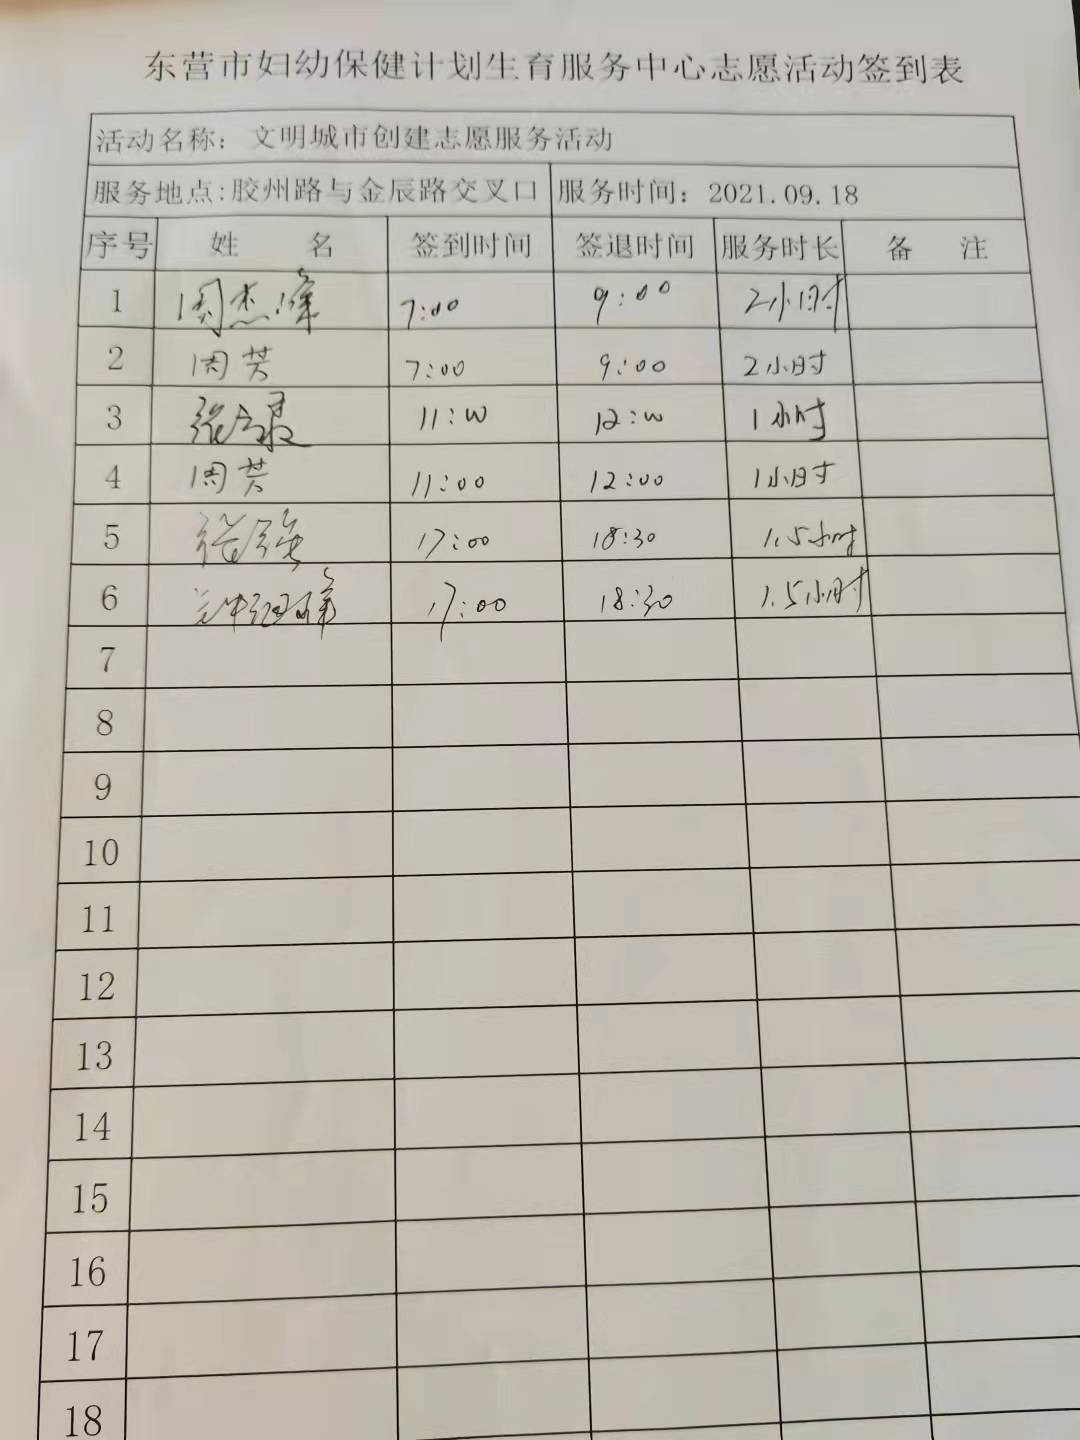 东营市妇幼保健计划生育服务中心志愿活动签到表
活动名称：文明城市创建志愿服务活动
服务地点:胶州路与金辰路交叉口 服务时间：2021.09.18
序号 姓 名 签到时间 签退时间 服务时长 备 注
1 周杰峰 7:00 9:00 2小时
2 周芳 7:00 9:00 2小时
3 11:00 12:00 1小时
4 周芳 11:00 12:00 1小时
5 张强 17:00 18:30 1.5小时
6 17:00 18:30 1.5小时
7
8
9
10
11
12
13
14
15
16
17
18